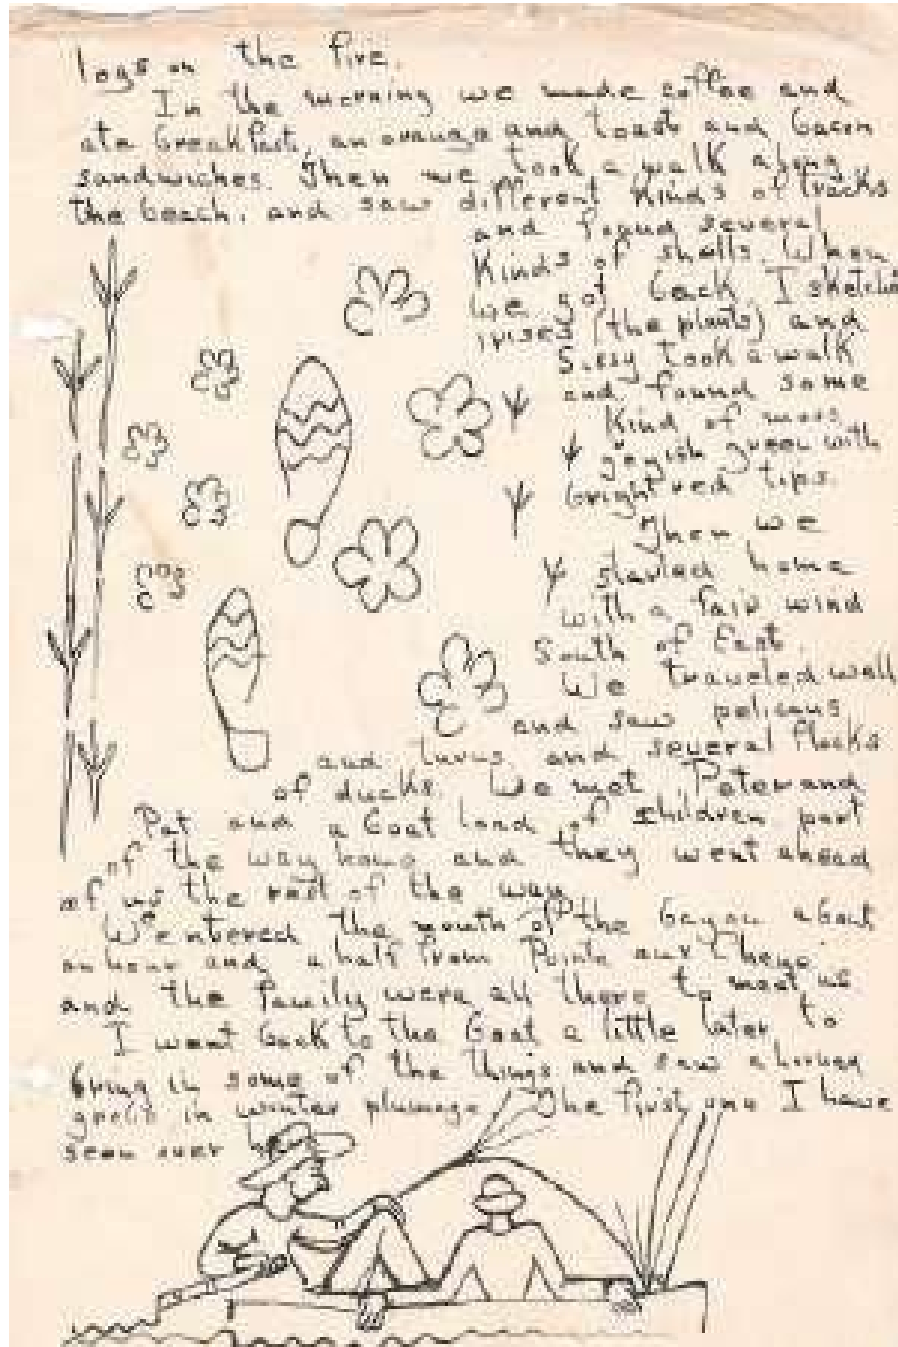 logs on the fire.
In the morning we made coffee and
ate breakfast, an orange and toast and bacon
sandwiches. Then we took a walk along
the beach, and saw different kinds of tracks
and found several
kinds of shells. When
we got back, I sketched
irises (the plants) and
Sissy took a walk
and found some
kind of moss,
green with
bright red tips.
Then we
started home
with a fair wind
South of East.
We traveled well
and saw pelicans
and and several flocks
of ducks. We met Peter and
Pat and a boat load of children part
of the way home and they went ahead
of us the rest of the way.
We entered the mouth of the bayou about
an hour and a half from Pointe aux Chenes
and the family were all there to meet us.
I went back to the boat a little later to
bring in some of the things and saw a horned
grebe in winter plumage. The first one I have
seen over here.